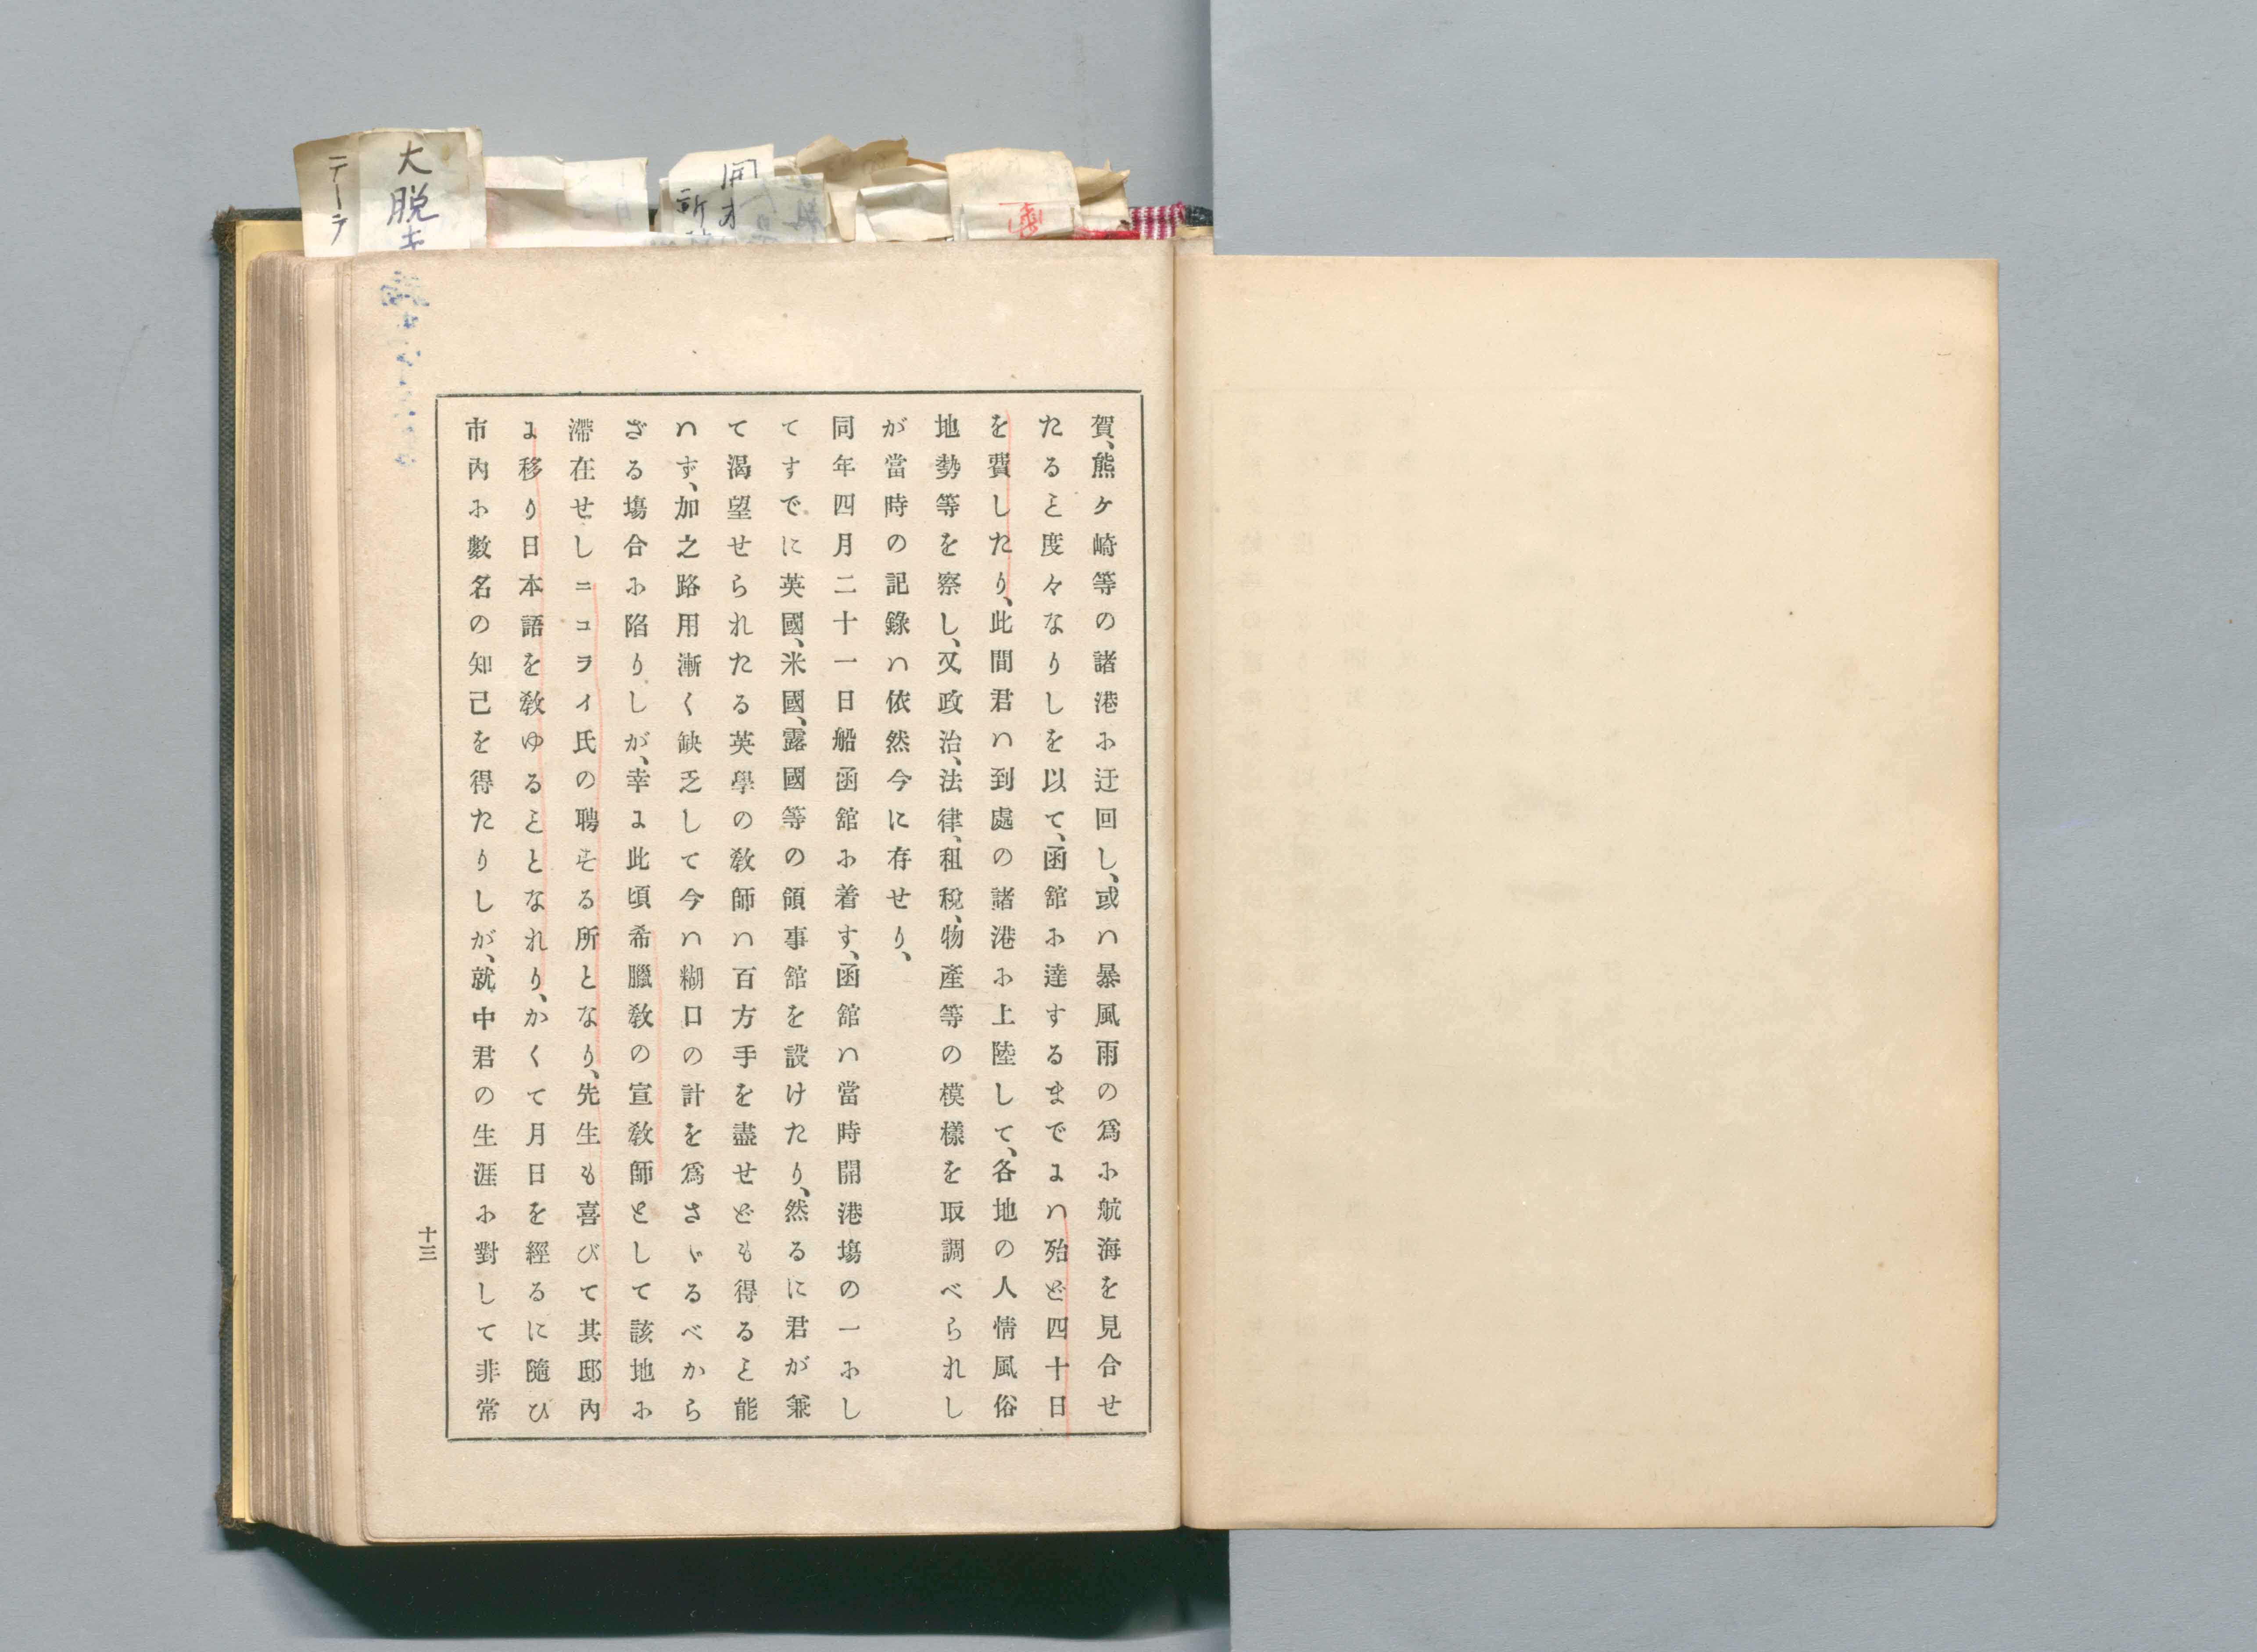 賀、熊ケ崎等の諸港ふ迂回し、或ハ暴風雨の爲ふ航海を見合せ
たるヿ度々なりしを以て、函舘ふ達するまでよハ殆ど四十日
を費したり、此間君ハ到處の諸港ふ上陸して、各地の人情風俗
地勢等を察し、又政治、法律、租税、物產等の模樣を取調べられし
が當時の記錄ハ依然今に存せり、
同年四月二十一日船函舘ふ着す、函舘ハ當時開港塲の一ふし
てすでに英國、米國、露國等の領事舘を設けたり、然るに君が兼
て渴望せられたる英學の敎師ハ百方手を盡せども得るヿ能
ハず、加之路用漸く缺乏して今ハ糊口の計を爲さゞるべから
ざる塲合ふ陷りしが、幸よ此頃希臘敎の宣敎師として該地ふ
滯在せしニコヲイ氏の聘する所となり、先生も喜びて其邸內
よ移り日本語を敎ゆるヿとなれり、かくて月日を經るに隨ひ
市內ふ數名の知己を得たりしが、就中君の生涯ふ對して非常
十三
大脱
テーラ